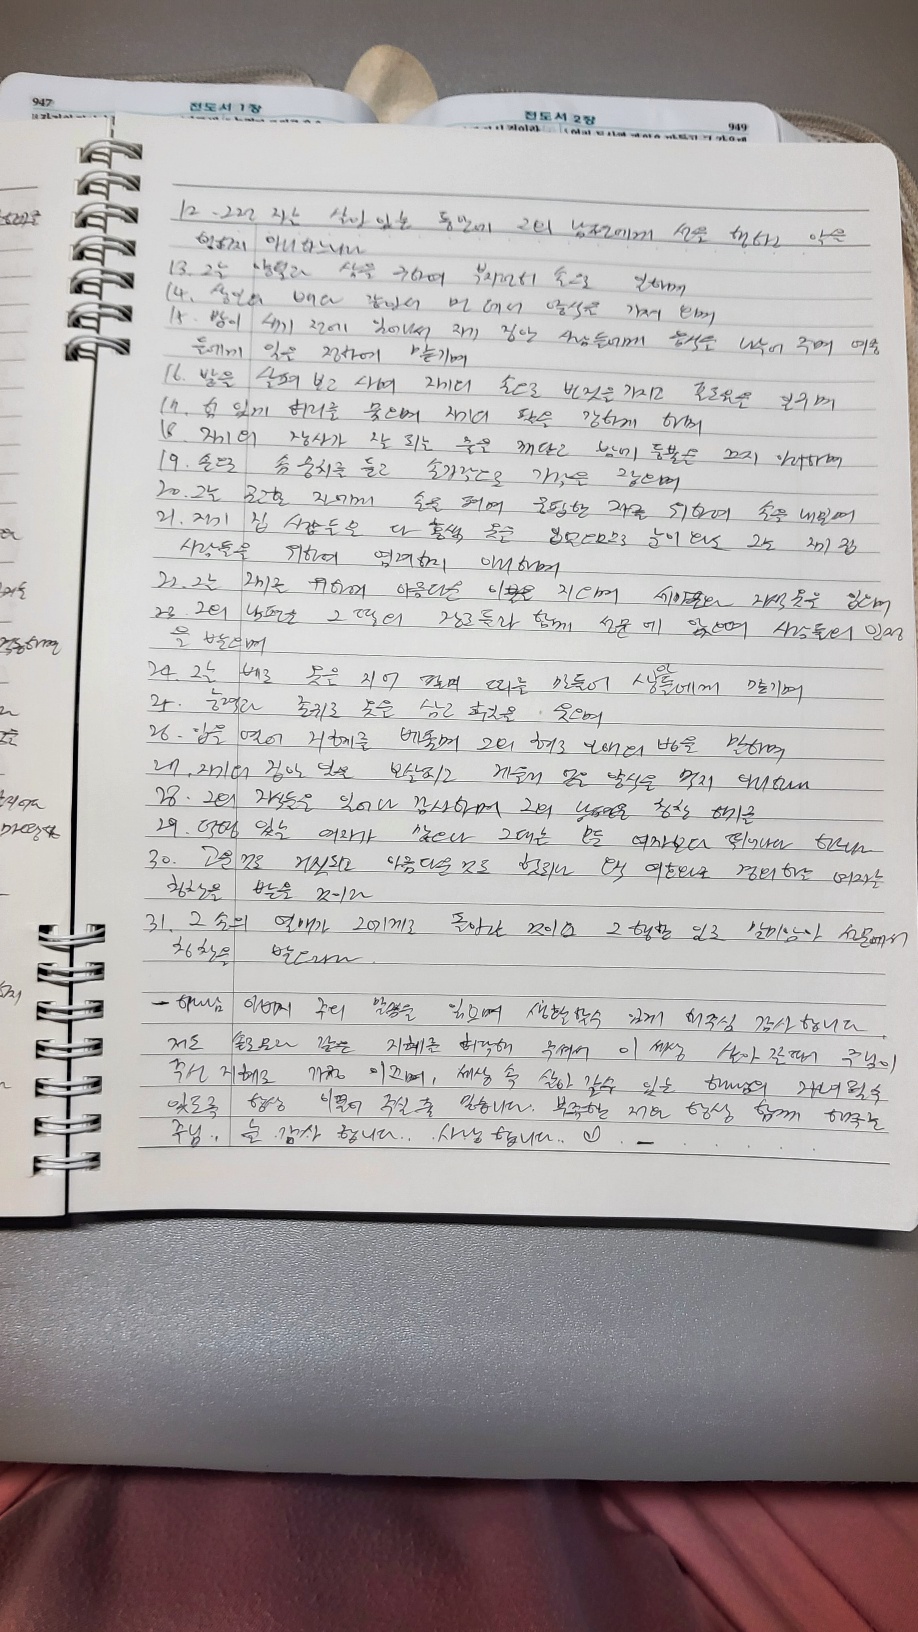 947
전도서 1장
전도서 2장
949
12. 그런 자는 살아 있는 동안에 그의 남편에게 선을 행하고 악을
행하지 아니하느니라
13. 그는 양털과 삼을 구하여 부지런히 손으로 일하며
14. 상인의 배와 같아서 먼 데서 양식을 가져 오며
15. 밤이 새기 전에 일어나서 자기 집안 사람들에게 음식을 나누어 주며 여종
들에게 일을 정하여 맡기며
16. 밭을 살펴 보고 사며 자기의 손으로 번 것을 가지고 포도원을 일구며
17. 힘 있게 허리를 묶으며 자기의 팔을 강하게 하며
18. 자기의 장사가 잘 되는 줄을 깨닫고 밤에 등불을 끄지 아니하며
19. 손으로 솜 뭉치를 들고 손가락으로 가락을 잡으며
20. 그는 곤고한 자에게 손을 펴며 궁핍한 자를 위하여 손을 내밀며
21. 자기 집 사람들은 다 홍색 옷을 입었으므로 눈이 와도 그는 자기 집
사람들을 위하여 염려하지 아니하며
22. 그는 자기를 위하여 아름다운 이불을 지으며 세마포와 자색 옷을 입으며
23. 그의 남편은 그 땅의 장로들과 함께 성문에 앉으며 사람들의 인정
을 받으며
24. 그는 베로 옷을 지어 팔며 띠를 만들어 상인들에게 맡기며
25. 능력과 존귀로 옷을 삼고 후일을 웃으며
26. 입을 열어 지혜를 베풀며 그의 혀로 인애의 법을 말하며
27. 자기의 집안 일을 보살피고 게을리 얻은 양식을 먹지 아니하나니
28. 그의 자식들은 일어나 감사하며 그의 남편은 칭찬하기를
29. 덕행 있는 여자가 많으나 그대는 모든 여자보다 뛰어나다 하느니라
30. 고운 것도 거짓되고 아름다운 것도 헛되나 오직 여호와를 경외하는 여자는
칭찬을 받을 것이라
31. 그 손의 열매가 그에게로 돌아갈 것이요 그 행한 일로 말미암아 성문에서
칭찬을 받으리라.
- 하나님 아버지 주의 말씀을 읽으며 생활할 수 있게 해주심 감사합니다
저도 솔로몬과 같은 지혜를 허락해 주셔서 이 세상 살아갈때 주님이
주신 지혜로 가정 이끄며, 세상 속 살아 갈수 있는 하나님의 자녀 될수
있도록 항상 이끌어 주실 줄 믿습니다. 부족한 저와 항상 함께 해주는
주님.. 늘 감사 합니다.. 사랑합니다.. ♡ . -